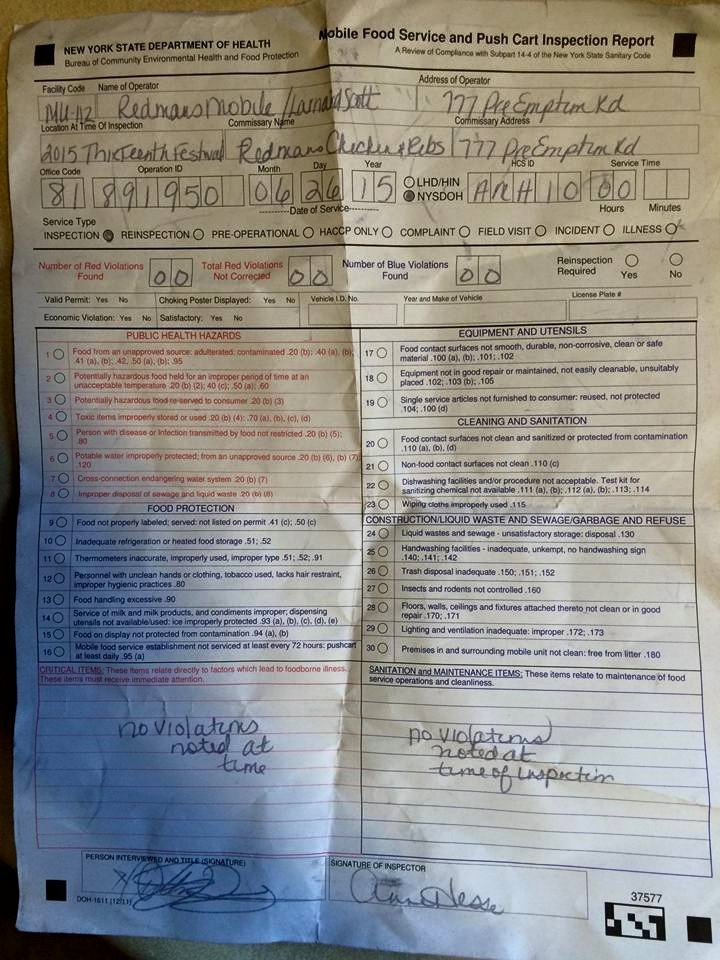 NEW YORK STATE DEPARTMENT OF HEALTH
Bureau of Community Environmental Health and Food Protection
Mobile Food Service and Push Cart Inspection Report
A Review of Compliance with Subpart 14-4 of the New York State Sanitary Code
Facility Code Name of Operator Address of Operator
MU-112 Redmans Mobile / Scott 777 PreEmption Rd
Location At Time Of Inspection Commissary Name Commissary Address
2015 Thirteenth Festival Redmans Chicken & Ribs 777 PreEmption Rd
Office Code Operation ID Month Day Year HCS ID Service Time
81 891950 06 26 15 LHD/HIN NYSDOH ARH10 00
Date of Service Hours Minutes
Service Type
INSPECTION REINSPECTION PRE-OPERATIONAL HACCP ONLY COMPLAINT FIELD VISIT INCIDENT ILLNESS
Number of Red Violations Found 00 Total Red Violations Not Corrected 00 Number of Blue Violations Found 00 Reinspection Required Yes No
Valid Permit: Yes No Choking Poster Displayed: Yes No Vehicle I.D. No. Year and Make of Vehicle License Plate #
Economic Violation: Yes No Satisfactory: Yes No
PUBLIC HEALTH HAZARDS
1 Food from an unapproved source: adulterated, contaminated .20 (b); .40 (a), (b);
.41 (a), (b); .42, .50 (a), (b); .95
2 Potentially hazardous food held for an improper period of time at an
unacceptable temperature .20 (b) (2); 40 (c); .50 (a); .60
3 Potentially hazardous food re-served to consumer .20 (b) (3)
4 Toxic items improperly stored or used .20 (b) (4); .70 (a), (b), (c), (d)
5 Person with disease or Infection transmitted by food not restricted .20 (b) (5);
.80
6 Potable water improperly protected; from an unapproved source .20 (b) (6), (b) (7)
.120
7 Cross-connection endangering water system .20 (b) (7)
8 Improper disposal of sewage and liquid waste .20 (b) (8)
FOOD PROTECTION
9 Food not properly labeled; served: not listed on permit .41 (c); .50 (c)
10 Inadequate refrigeration or heated food storage .51; .52
11 Thermometers inaccurate, improperly used, improper type .51; .52; .91
12 Personnel with unclean hands or clothing, tobacco used, lacks hair restraint,
improper hygienic practices .80
13 Food handling excessive .90
14 Service of milk and milk products, and condiments improper; dispensing
utensils not available/used: ice improperly protected .93 (a), (b), (c), (d), (e)
15 Food on display not protected from contamination .94 (a), (b)
16 Mobile food service establishment not serviced at least every 72 hours: pushcart
at least daily .95 (a)
CRITICAL ITEMS: These items relate directly to factors which lead to foodborne illness.
These items must receive immediate attention.
no violations
noted at
time
EQUIPMENT AND UTENSILS
17 Food contact surfaces not smooth, durable, non-corrosive, clean or safe
material .100 (a), (b); .101; .102
18 Equipment not in good repair or maintained, not easily cleanable, unsuitably
placed .102; .103 (b); .105
19 Single service articles not furnished to consumer: reused, not protected
.104; .100 (d)
CLEANING AND SANITATION
20 Food contact surfaces not clean and sanitized or protected from contamination
.110 (a), (b), (d)
21 Non-food contact surfaces not clean .110 (c)
22 Dishwashing facilities and/or procedure not acceptable. Test kit for
sanitizing chemical not available .111 (a), (b); .112 (a), (b); .113; .114
23 Wiping cloths improperly used .115
CONSTRUCTION/LIQUID WASTE AND SEWAGE/GARBAGE AND REFUSE
24 Liquid wastes and sewage - unsatisfactory storage: disposal .130
25 Handwashing facilities - inadequate, unkempt, no handwashing sign
.140; .141; .142
26 Trash disposal inadequate .150; .151; .152
27 Insects and rodents not controlled .160
28 Floors, walls, ceilings and fixtures attached thereto not clean or in good
repair .170; .171
29 Lighting and ventilation inadequate: improper .172; .173
30 Premises in and surrounding mobile unit not clean: free from litter .180
SANITATION and MAINTENANCE ITEMS: These items relate to maintenance of food
service operations and cleanliness.
no violations
noted at
time of inspection
PERSON INTERVIEWED AND TITLE (SIGNATURE)
SIGNATURE OF INSPECTOR
DOH-1611 (12/11)
37577